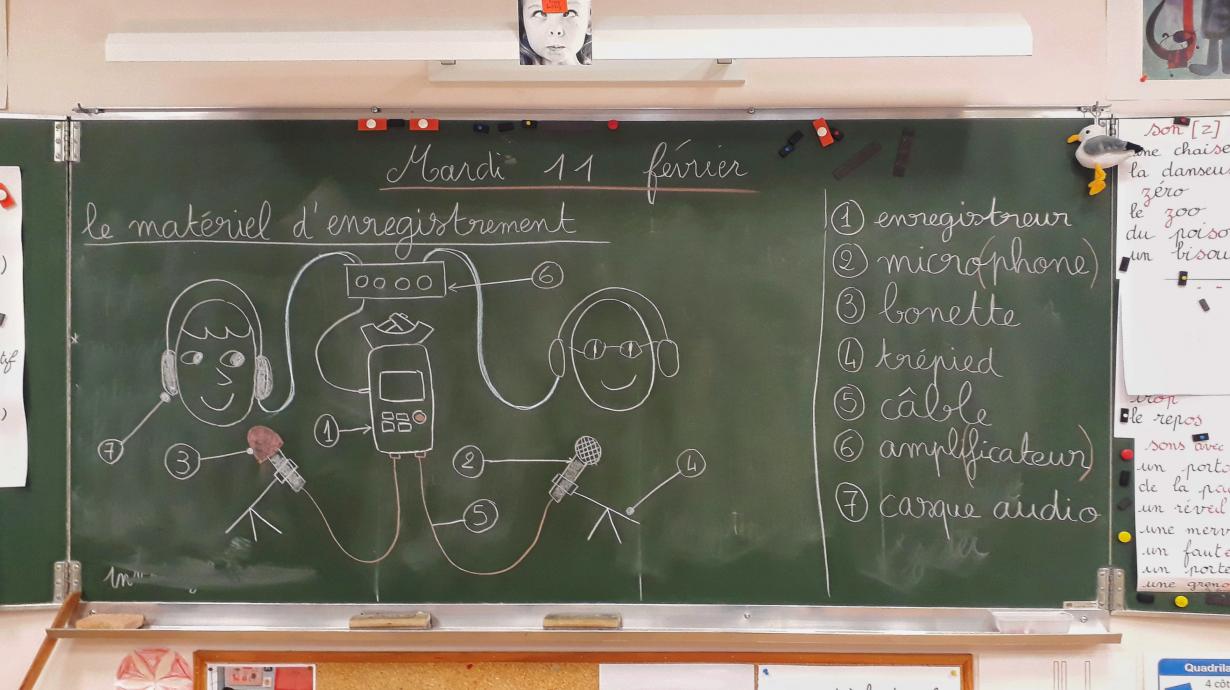 Mardi 11 février
le matériel d'enregistrement
① enregistreur
② micro(phone)
③ bonette
④ trépied
⑤ câble
⑥ ampli(ficateur)
⑦ casque audio
6
7
3
1
2
4
5
son [z]
une chaise
la danseu
zéro
le zoo
du poiso
un bisou
trop
le repos
sons avec
un porta
de la pa
un réveil
une merv
un faute
un porte
une greno
tif
)
)
Quadrila
4 côt